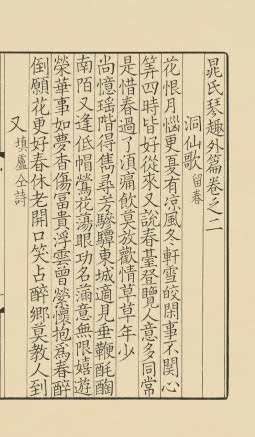 晁氏琴趣外篇卷之二
洞仙歌 留春
花恨月惱更夏有凉風冬軒雪皎閑事不關心
筭四時皆好從來又說春臺登覽人意多同常
是惜春過了湏痛飲莫放歡情草草年少
尚憶瑶階得雋尋芳驂驔東城適見垂鞭酩酊
南陌又逢低帽鶯花蕩眼功名滿意無限嬉遊
榮華事如夢杳傷冨貴浮雲曽縈懷抱爲春醉
倒願花更好春休老開口笑占醉鄉莫教人到
又 填盧仝詩